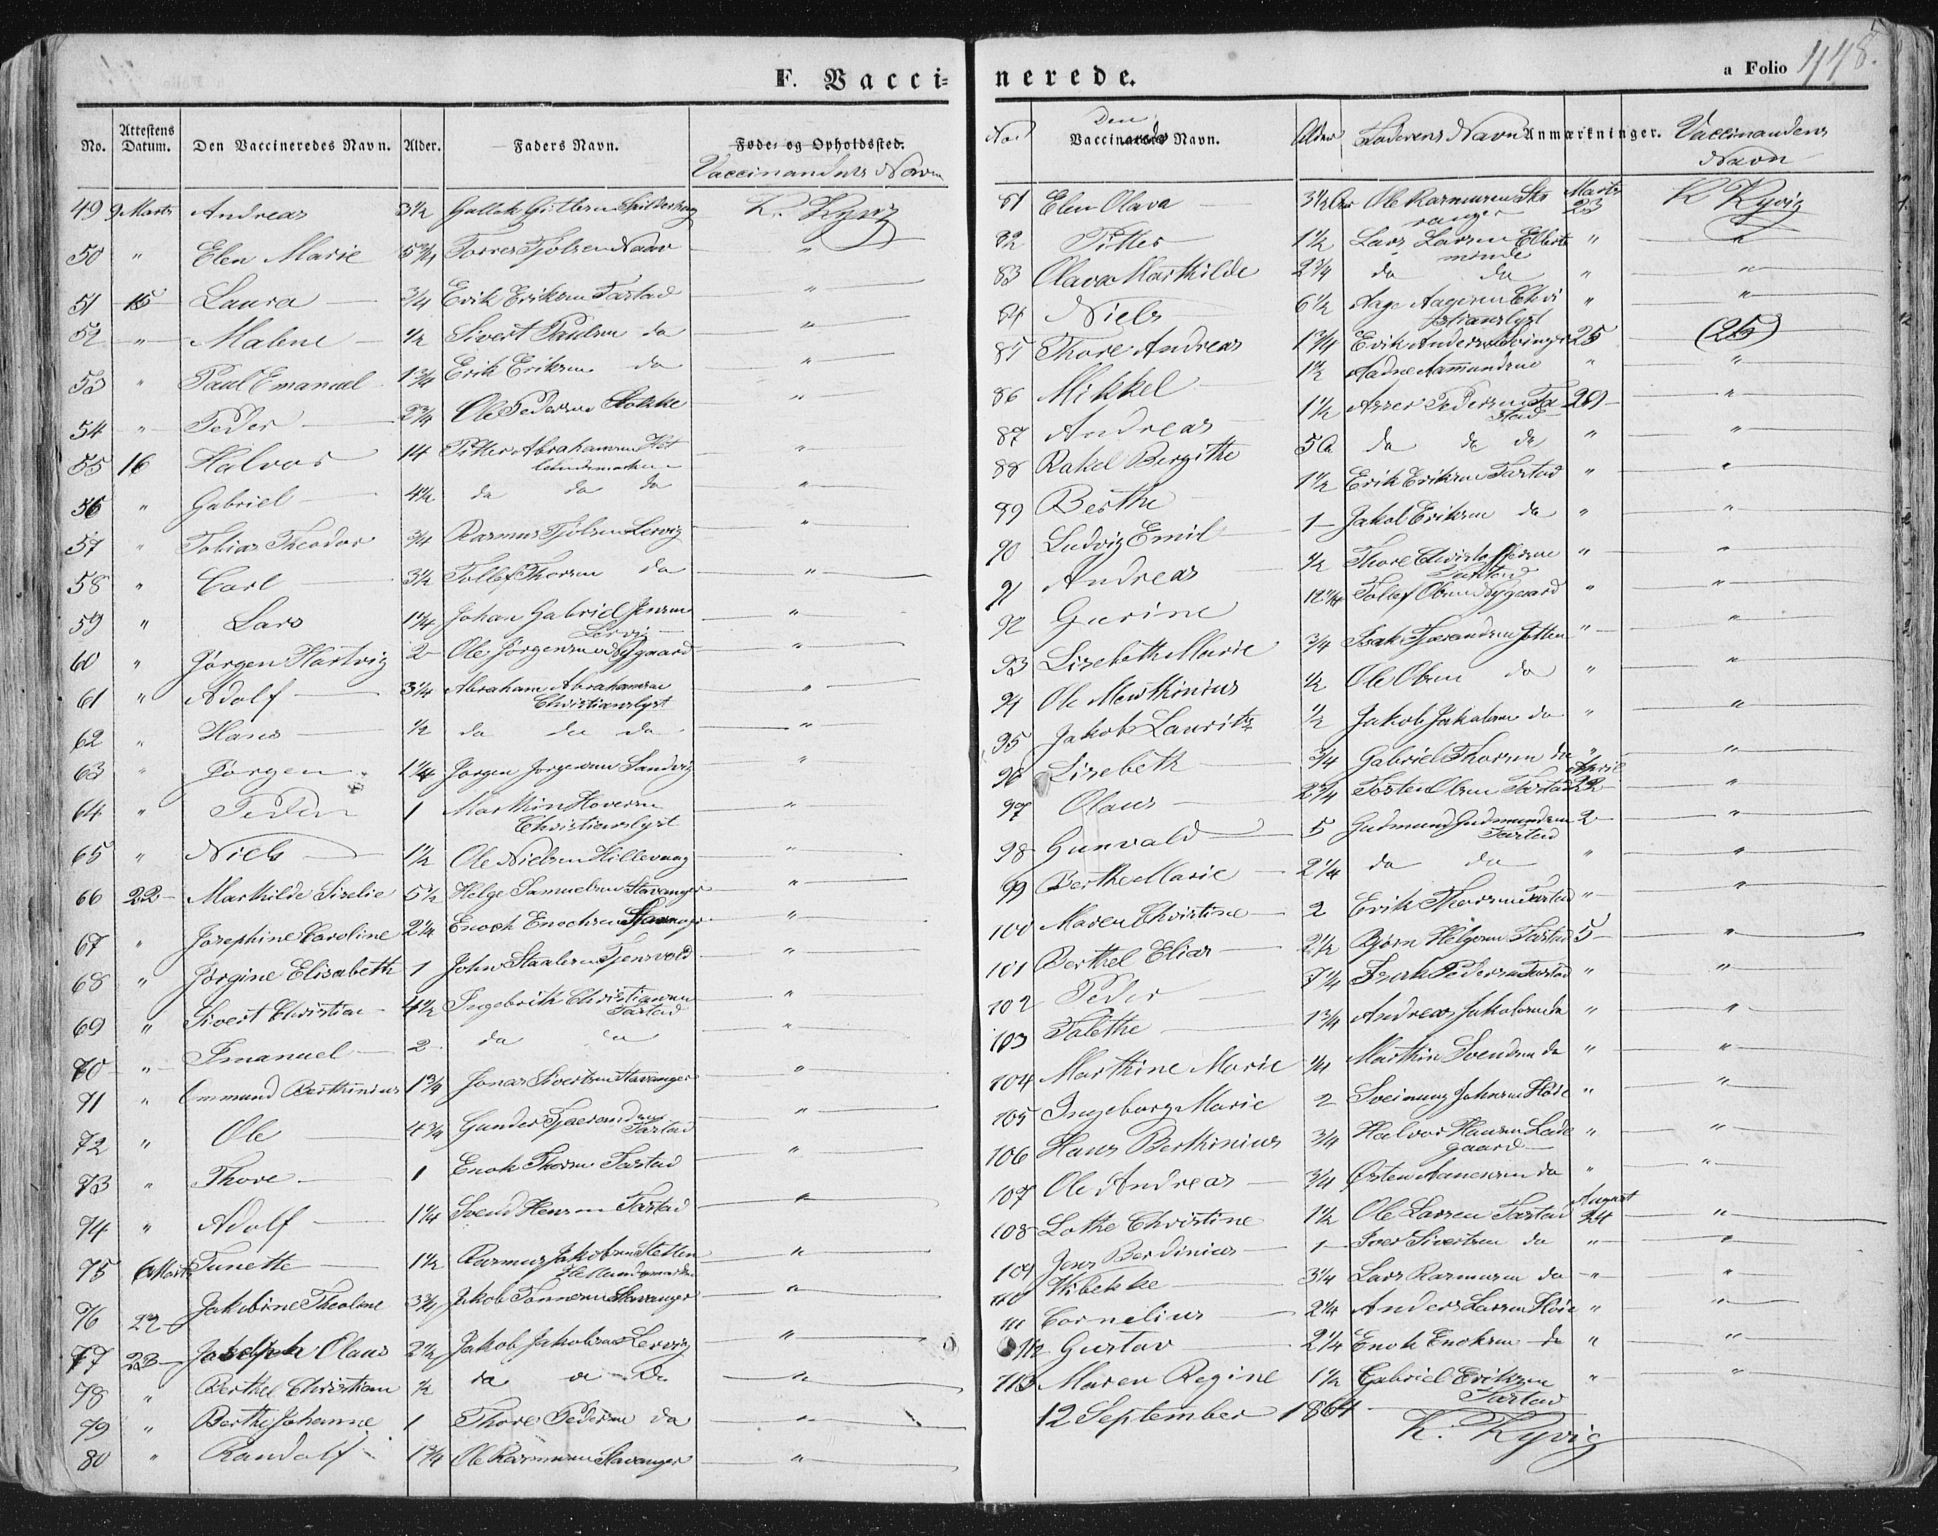 F. Vacci-
nerede.
a Folio 448.
No. Attestens Datum. Den Vaccineredes Navn. Alder. Faders Navn. Føde- og Opholdssted.
Vaccinandens Navn
49 9 Marts Andreas 3½ K. Kyvig
50 " Elen Marie 5¾ "
51 15 Laura ¾ Erik Eriksen Tastad "
52 " Malene ½ Sivert Paulsen do "
53 " Paul Emanuel 1¾ Erik Eriksen do "
54 " Peder 2¾ Ole Pedersen Stokke "
55 16 Halvor 14 Pitter Abrahamsen "
56 " Gabriel 4½ do do do "
57 " Tobias Theodor ¾ Rasmus Lervig "
58 " Carl 3½ Tollef Thorsen do "
59 " Lars 1¼ Johan Gabriel Jensen
Lervig "
60 " Jørgen Hartvig 2 Ole Jørgensen "
61 " Adolf 3¼ Abraham Abrahamsen
Christianslyst "
62 " Hans ½ do do do "
63 " Jørgen 1¼ Jørgen Jørgensen Sandvig "
64 " Peder 1 Marthin
Christianslyst "
65 " Niels 1½ Ole Nielsen Hillevaag "
66 22 Marthilde Sirelie 5½ Helge Samuelsen Stavanger "
67 " Josephine Caroline 2¼ Enoch Enochsen Stavanger "
68 " Jørgine Elisabeth 1 John Tjensvold "
69 " Sivert Christian 4½ Ingebrith Christiansen
Tastad "
70 " Emanuel 2 do "
71 " Ommund Berthinius 1¾ Jonas Sivertsen Stavanger "
72 " Ole 4¾ Gunder
Tastad "
73 " Thore 1 Enok Thorsen Tastad "
74 " Adolf 1¼ Svend Tastad "
75 6 Marts Tunette 1½ Rasmus Jakobsen
"
76 22 Jakobine Theoline 3¾ Jakob Stavanger "
77 23 Olaus 2½ Jakob Jakobsen Lervig "
78 " Berthel Christian ½ do "
79 " Berthe Johanne 1 Thore Pedersen do "
80 " Randolf 1¾ Ole Rasmussen Stavanger "
No. Den Vaccinerede Navn. Alder Faderens Navn Anmærkninger. Vaccinandens
Navn
81 Elen Olava 3½ Ole Rasmussen Sta
vanger Marts 23 K Kyvig
82 Pitter 1½ Lars Larsen "
83 Olava Marthilde 2¾ do do "
84 Niels 6½ Aage Aagesen Chri
stianslyst "
85 Thore Andreas 1¾ Erik 25 (25)
86 Mikkel 1½ Aadne Aamundsen "
87 Andreas 1½ Asser Pedersen Ta
stad 29 "
88 Rakel Bergithe 5 do do do "
89 Berthe 1½ Erik Eriksen Tastad "
90 Ludvig Emil 1 Jakob Eriksen do "
91 Andreas ½ Thore Christoffersen
Tastad "
92 Gurine Tollef Olsen "
93 Lisebeth Marie ¾ Isak Jåtten "
94 Ole Marthinius ½ Ole Olsen do "
95 Jakob Laurits ½ Jakob Jakobsen do "
96 Lisebeth ¾ Gabriel Thorsen do "
97 Olaus 2¾ Tosten Olsen Tastad April 22 "
98 Gunvald 5 Gudmund Gudmundsen
Tastad 2 "
99 Berthe Marie 2¼ do do "
100 Maren Christine 2 Erik Thorsen Tastad "
101 Berthel Elias 2½ Bjørn Helgesen Tastad 5 "
102 Peder 7¼ Isak Pedersen Tastad "
103 Talethe 1¾ Andreas Jakobsen do "
104 Marthine Marie ¼ Marthin Svendsen do "
105 Ingeborg Marie 2 Sveinung Johnsen "
106 Hans Berthinius ¾ Halvor Hansen Lade
gaard "
107 Ole Andreas ¾ Østen Aanensen do "
108 Lothe Christine 1½ Ole Larsen Tastad August 24 "
109 Jens Berdinius 1 Iver Sivertsen do "
110 Wibekke 3¼ Lars Rasmussen do "
111 Cornelius 2¼ Anders Larsen "
112 Gustav 2¼ Enok Enoksen do "
113 Maren Regine 1½ Gabriel Eriksen
Tastad "
12 September 1864
K. Kyvig